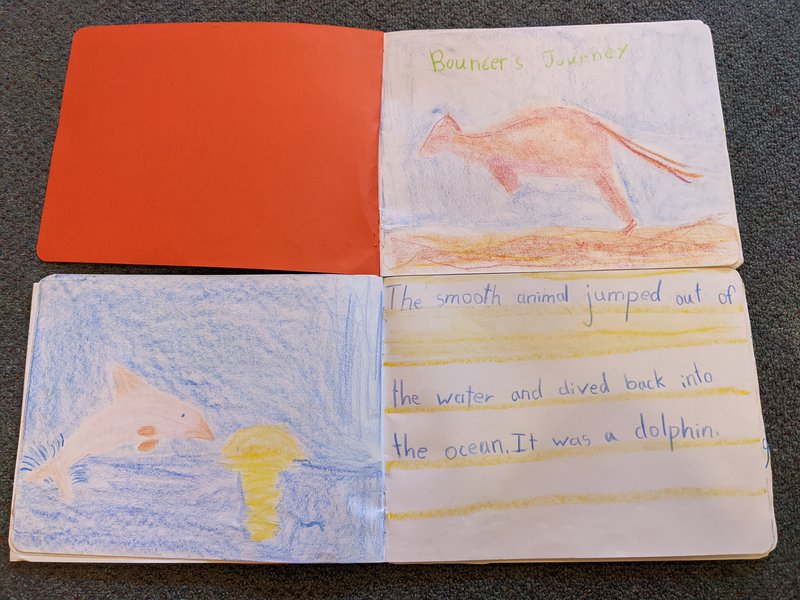 Bouncer's Journey
The smooth animal jumped out of
the water and dived back into
the ocean. It was a dolphin.